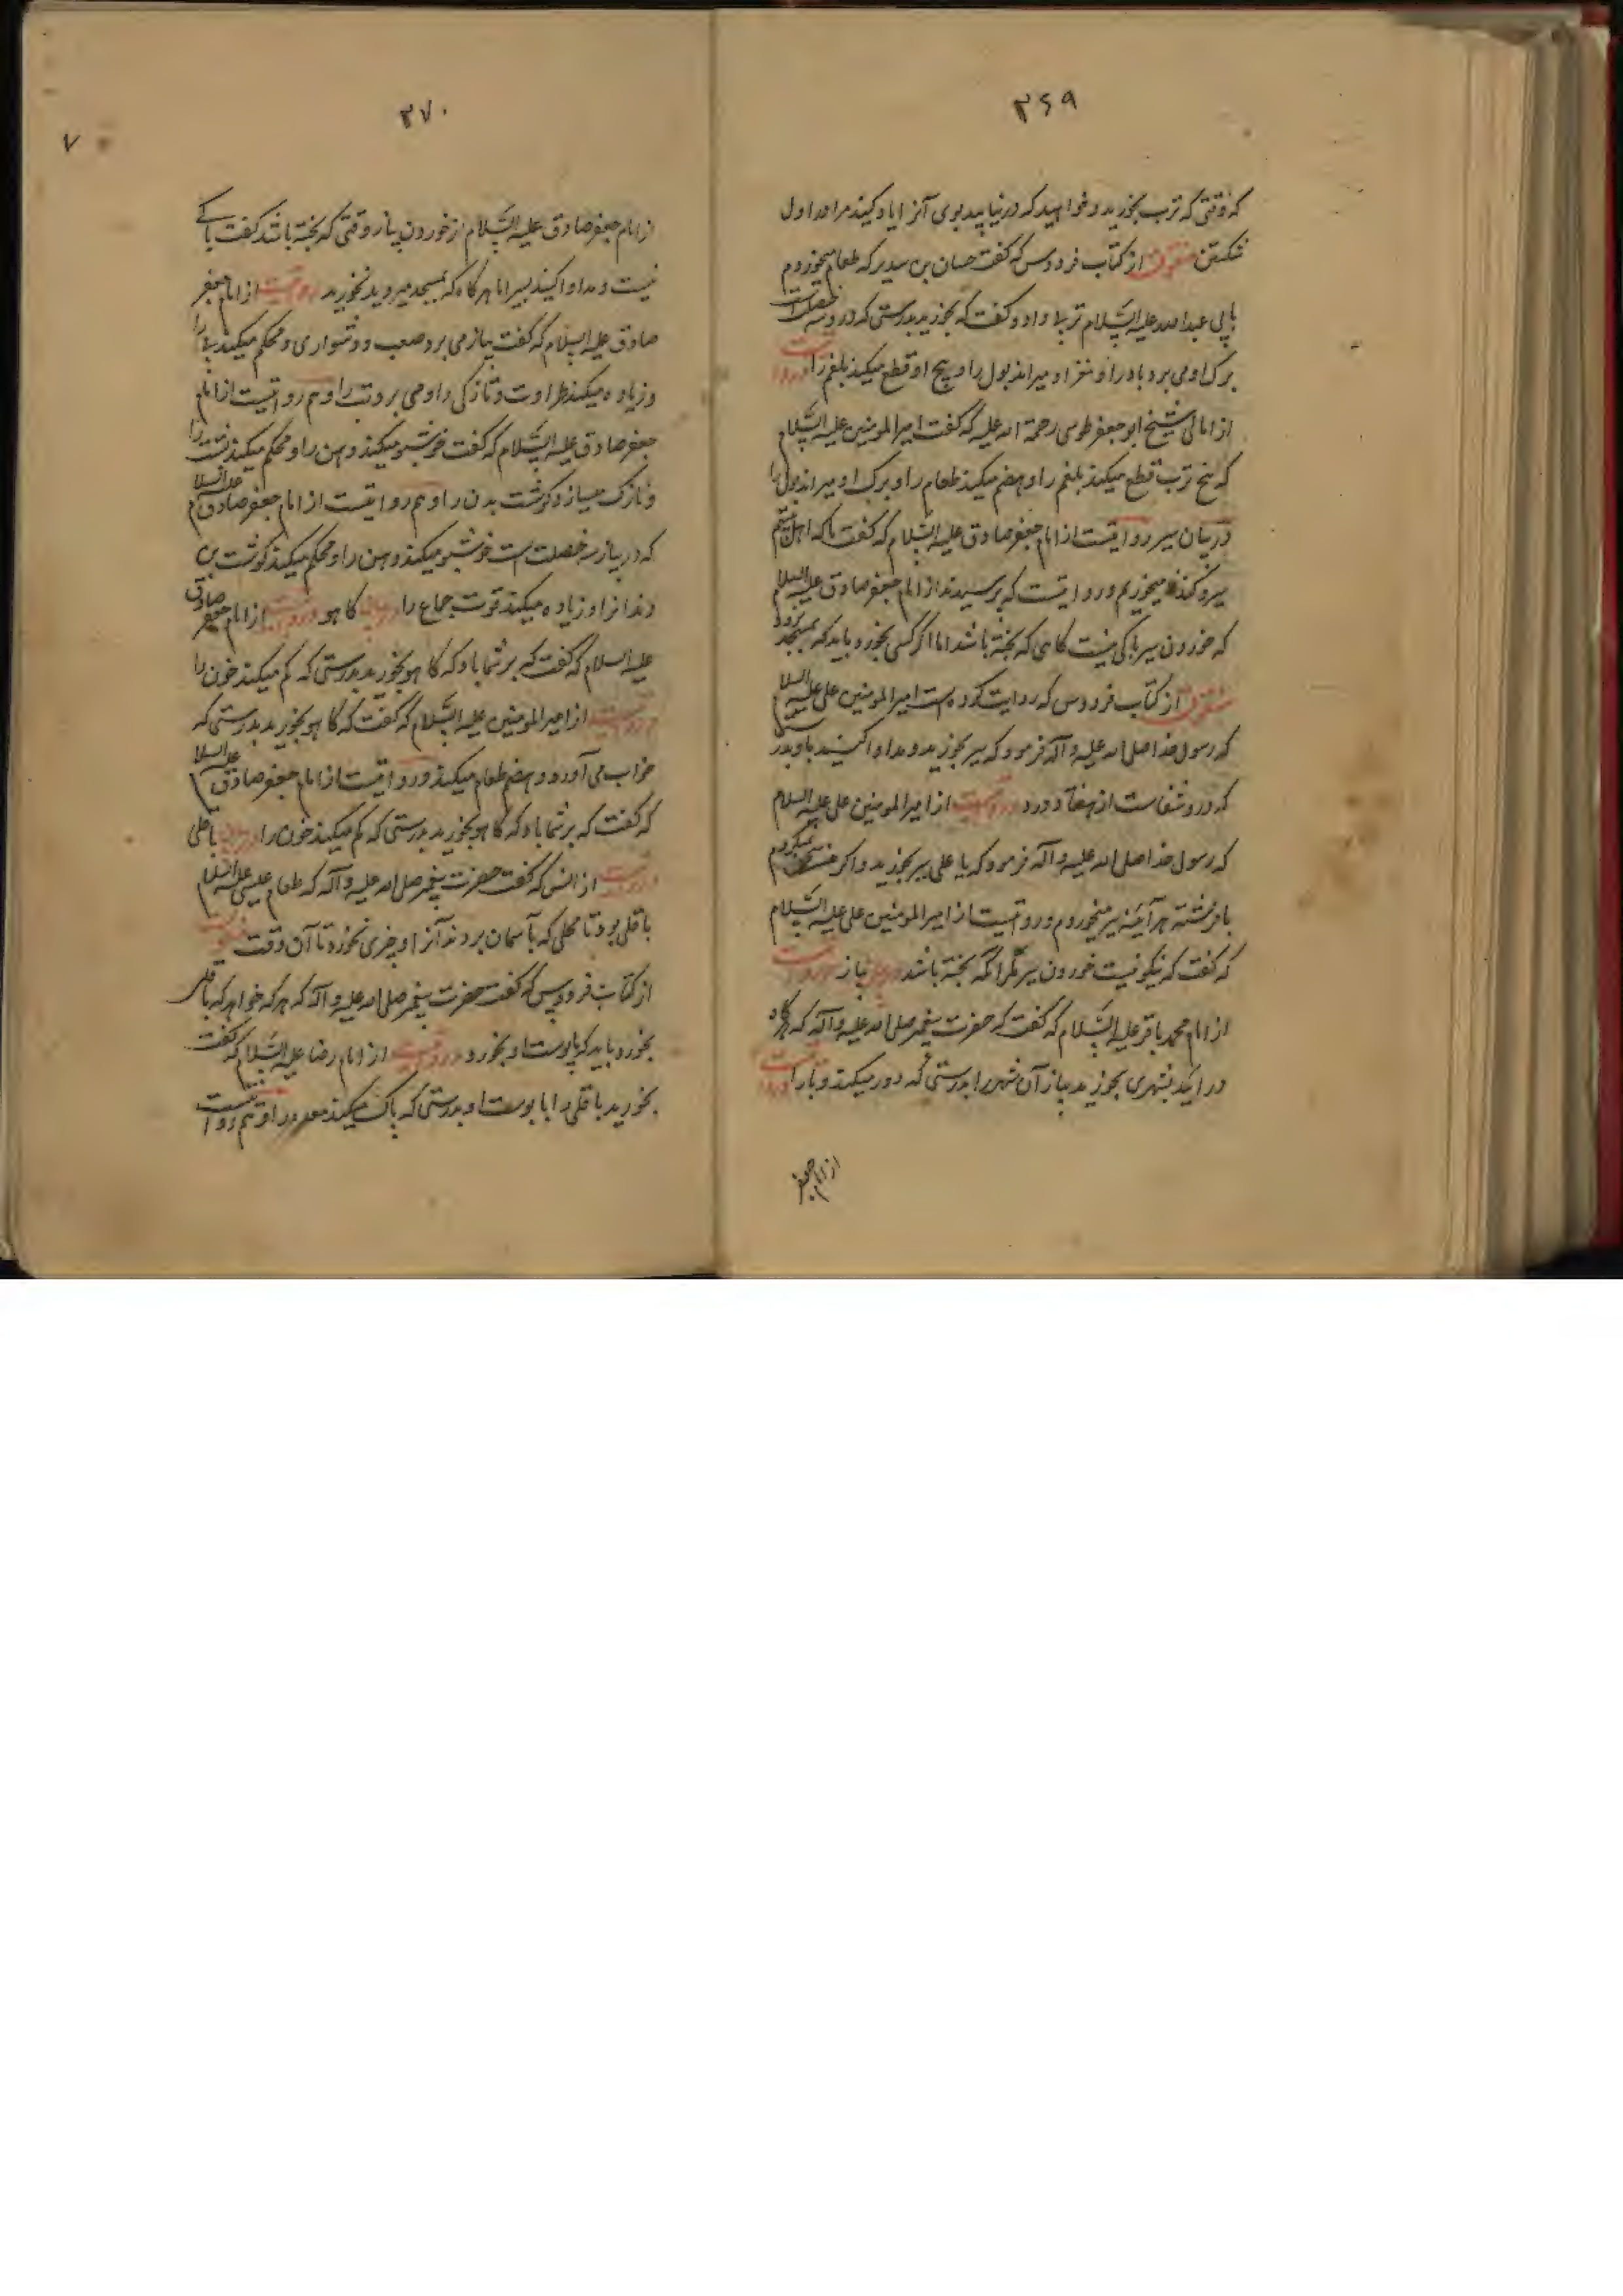 ۳۶۹
که وقتی که ترب بخورید و خواهید که درنیابید بوی آنرا یاد کنید مرا در اول
شکستن منقولست از کتاب فردوس که گفت حنان بن سدیر که طعام میخوردم
بابی عبدالله علیه السلام تربی داد و گفت که بخورید بدرستی که درو سه خصلت است
برک او می برد باد را و مغز او میراند بول را و بیخ او قطع میکند بلغم را و روایتست
از امالی شیخ ابو جعفر طوسی رحمة الله علیه که گفت امیر المومنین علیه السلام
که بیخ ترب قطع میکند بلغم را و هضم میکند طعام را و برک او میراند بول را
در بیان سیر روایتست از امام جعفر صادق علیه السلام که گفت ما که اهل
سیر و کندنا میخوریم و روایتست که پرسیدند از امام جعفر صادق علیه السلام
که خوردن سیر باکی نیست گاهی که پخته باشد اما اگر کسی بخورد باید که بمسجد نرود
منقولست از کتاب فردوس که روایت کرده است امیر المومنین علی علیه السلام
که رسول خدا صلی الله علیه و آله فرمود که سیر بخورید و مداوا کنید باو بدرستی
که درو شفاست از هفتاد درد و روایتست از امیر المومنین علی علیه السلام
که رسول خدا صلی الله علیه و آله فرمود که یا علی سیر بخورید و اگر من سخن نمیکردم
با فرشته هر آینه سیر میخوردم و روایتست از امیر المومنین علی علیه السلام
که گفت که نیکو نیست خوردن سیر مگر آنکه پخته باشد در بیان پیاز و روایتست
از امام محمد باقر علیه السلام که گفت که حضرت پیغمبر صلی الله علیه و آله که هرگاه
در آئید بشهری بخورید پیاز آن شهر را بدرستی که دور میکند وبا را و روایتست
از امام جعفر
۳۷۰
۷
از امام جعفر صادق علیه السلام از خوردن پیاز وقتی که پخته باشد گفت باکے
نیست و مداوا کنید بسیر اما هرگاه که بمسجد میروید نخورید روایتست از امام جعفر
صادق علیه السلام که گفت پیاز می برد صعب و دشواری و محکم میکند پی را
و زیاده میکند طراوت و تازگی را و می برد تب را و هم روایتست از امام
جعفر صادق علیه السلام که گفت خوشبو میکند دهن را و محکم میکند پشت را
و نازک میسازد گوشت بدن را و هم روایتست از امام جعفر صادق علیه السلام
که در پیاز سه خصلت است خوشبو میکند دهن را و محکم میکند گوشت بن
دندانرا و زیاده میکند قوت جماع را در بیان کاهو و روایتست از امام جعفر صادق
علیه السلام که گفت که بر شما باد که کاهو بخورید بدرستی که کم میکند خون را
و روایتست از امیر المومنین علیه السلام که گفت که کاهو بخورید بدرستی که
خواب می آورد و هضم طعام میکند و روایتست از امام جعفر صادق علیه السلام
که گفت که بر شما باد که کاهو بخورید بدرستی که کم میکند خون را در بیان باقلی
روایتست از انس که گفت حضرت پیغمبر صلی الله علیه و آله که طعام عیسی علیه السلام
باقلی بود تا محلی که بآسمان بردند آنرا و چیزی نخورد تا آن وقت منقولست
از کتاب فردوس که گفت حضرت پیغمبر صلی الله علیه و آله که هر که خواهد که باقلی
بخورد باید که با پوست او بخورد و روایتست از امام رضا علیه السلام که گفت
بخورید باقلی را با پوست او بدرستی که پاک میکند معده را و هم روایتست